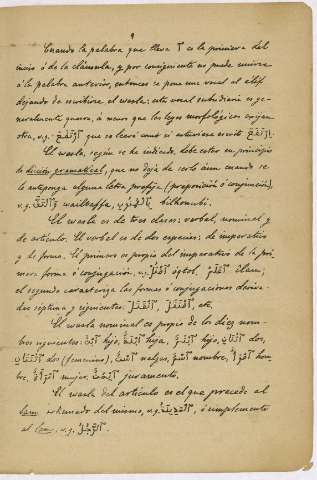 9
Cuando la palabra que lleva ٱ es la primera del
inciso ó de la cláusula, y por consiguiente no puede unirse
á la palabra anterior, entonces se pone una vocal al élif
dejando de escribirse el wasla: esta vocal subsidiaria es ge-
neralmente quesra, á menos que las leyes morfológicas exijan
otra, v.g. que se leerá como si estuviera escrito
El wasla, según se ha indicado, debe estar en principio
de dicción gramatical, que no deja de serlo aun cuando se
le anteponga alguna letra prefija (preposición ó conjunción),
v.g. wailtaffa, bilhoubi.
El wasla es de tres clases: verbal, nominal y
de artículo. El verbal es de dos especies: de imperativo
y de forma. El primero es propio del imperativo de la pri-
mera forma ó conjugación v.g. ٱقْتُلْ óqtol, ٱعْلَمْ ilam;
el segundo caracteriza las formas ó conjugaciones deriva-
das séptima y siguientes: ٱنْقَتَلَ, ٱقْتَتَلَ, etc.
El wasla nominal es propio de los diez nom-
bres siguientes: ٱبْنٌ hijo, ٱبْنَةٌ hija, ٱبْنُمٌ hijo, ٱثْنَانِ dos,
ٱثْنَتَانِ dos (femenino), ٱسْتٌ nalgas, ٱسْمٌ nombre, ٱمْرُؤٌ hom-
bre, ٱمْرَأَةٌ mujer, ٱيْمُنٌ juramento.
El wasla del artículo es el que precede al
lam exhumado del mismo, v.g. ó simplemente
al lam, v.g. ٱلرَّجُلُ.